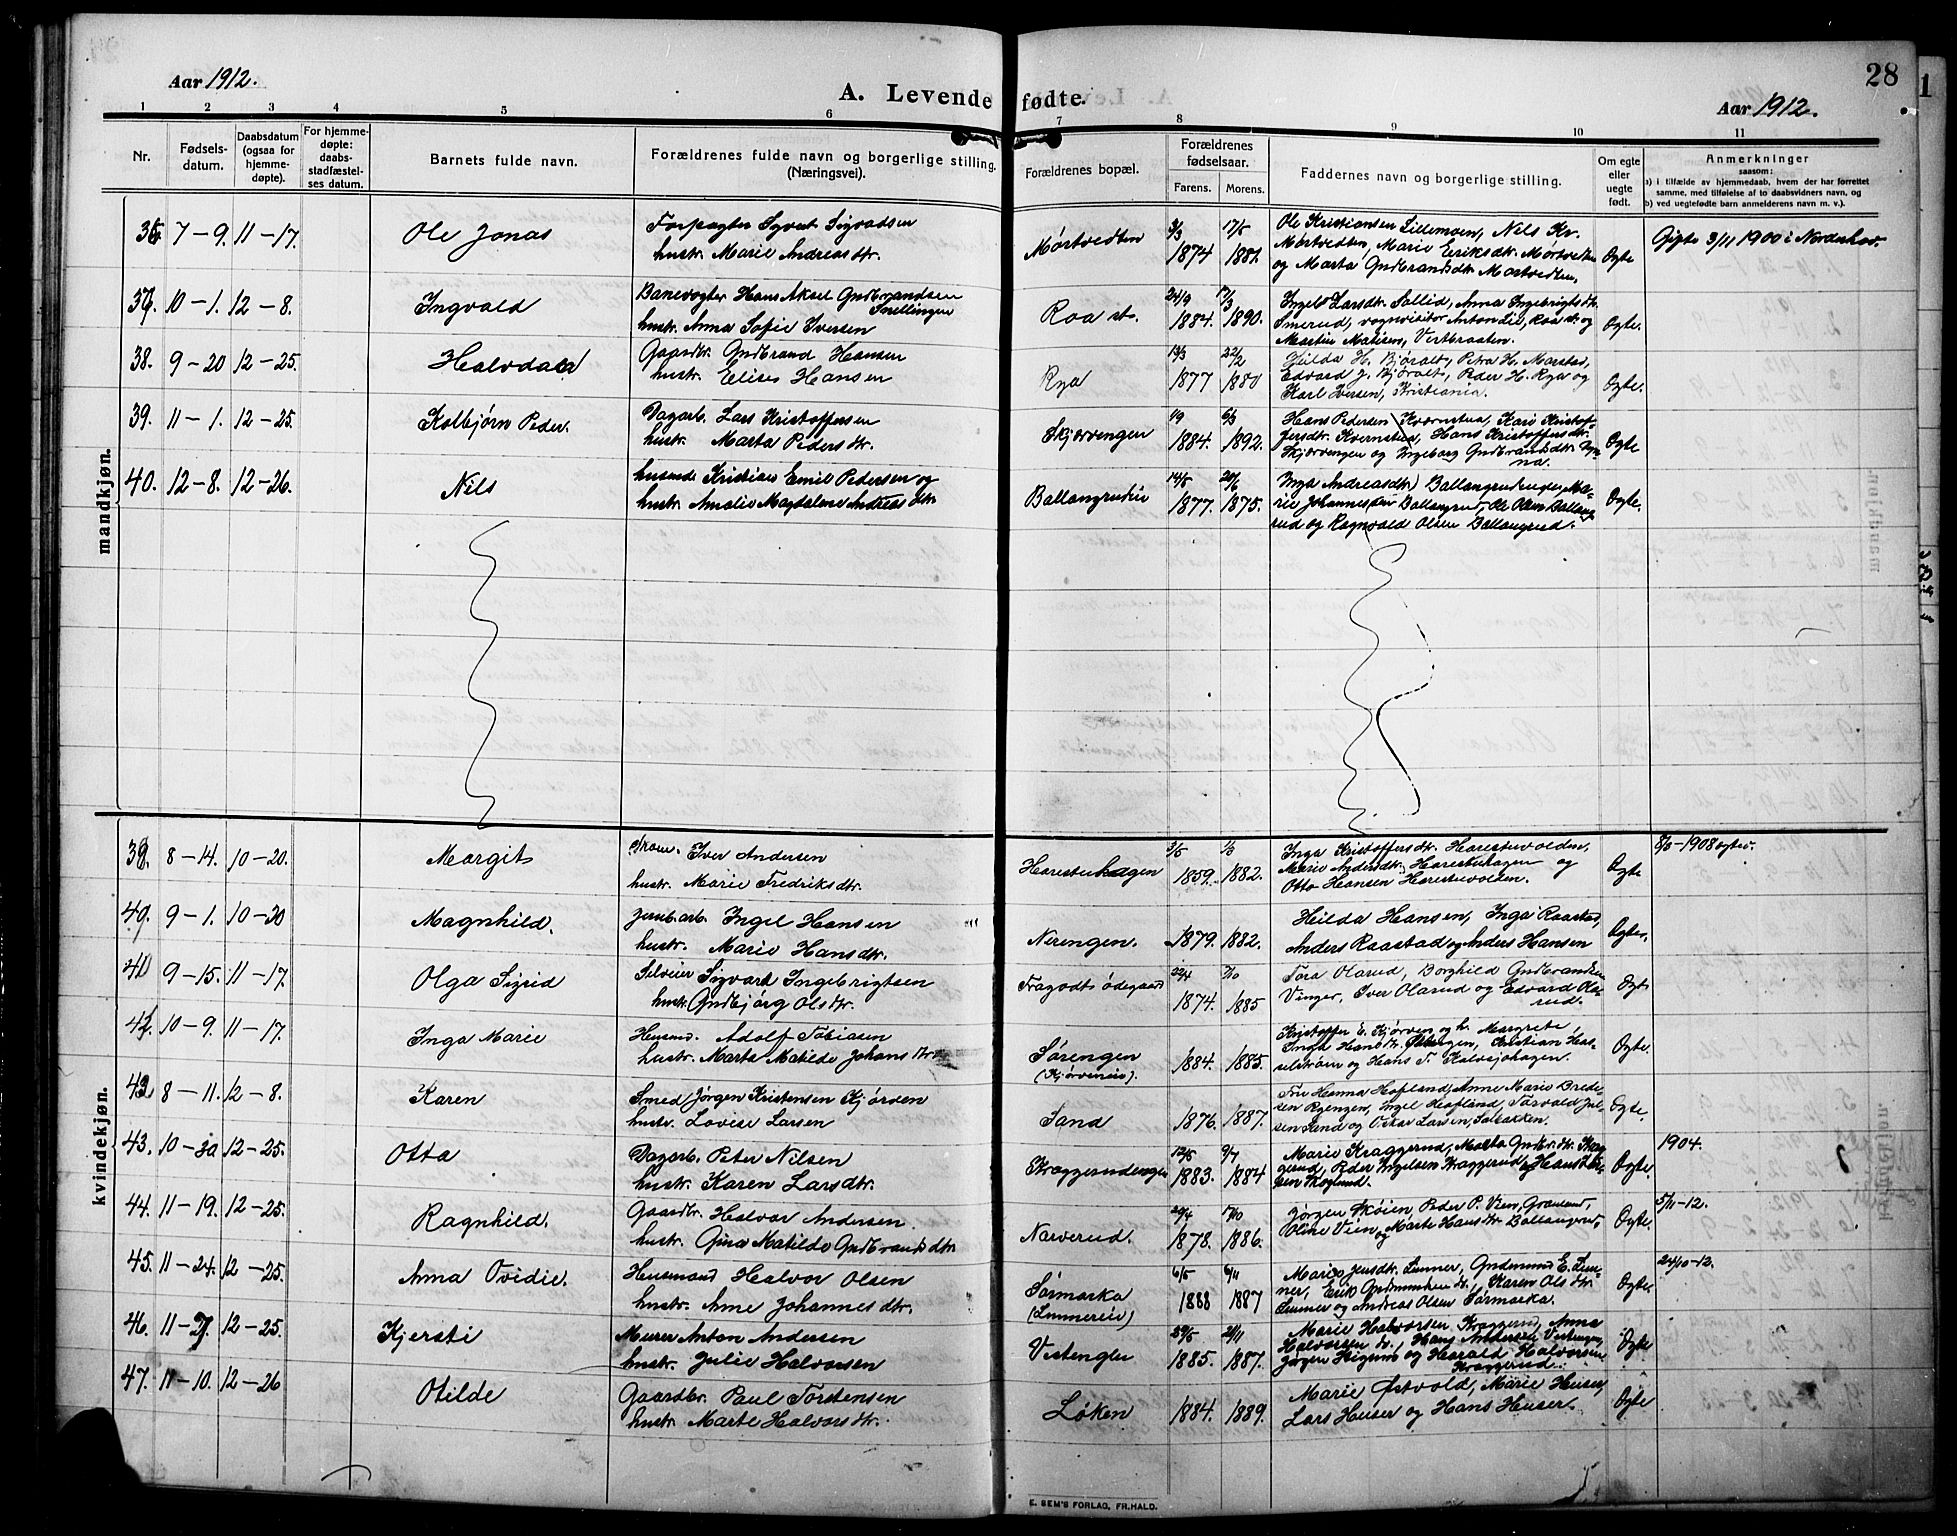 28
Aar 1912.
A. Levende fødte.
Aar 1912.
1 2 3 4 5 6 7 8 9 10 11
Nr.
Fødsels-
datum.
Daabsdatum
(ogsaa for
hjemme-
døpte).
For hjemme-
døpte:
daabs-
stadfæstel-
ses datum.
Barnets fulde navn.
Forældrenes fulde navn og borgerlige stilling.
(Næringsvei).
Forældrenes bopæl.
Forældrenes
fødselsaar.
Farens. Morens.
Faddernes navn og borgerlige stilling.
Om egte
eller
uegte
født.
Anmerkninger
saasom:
a) i tilfælde av hjemmedaab, hvem der har forrettet
samme, med tilføielse af to daabsvidners navn, og
b) ved uegtefødte barn anmelderens navn m. v.).
mandkjøn.
36. 7-9. 11-17. Ole Jonas
Forpagter Syvert Sigvadsen
hustr. Marie Andreasdtr.
Mørtvedten
3/3 1874 17/5 1881.
Ole Kristiansen Lillemoen, Nils Kr.
Mørtvedten, Marie Eriksdtr. Mørtvedten
og Marta Gudbrandsdtr. Mørtvedten,
Egte
Gifte 3/11 1900 i Norderhov.
37. 10-1. 12-8. Ingvald
Banevogter Hans Aksel Gudbrandsen
Snellingen
hustr. Anna Sofie Iversen
Roa st.
24/9 1884. 17/3 1890.
Larsdtr. Sollid, Anna Ingebrigtsdtr.
Smerud, vognvisitør Anton Lie, Roa st. og
Martin Matisen,
Egte.
38. 9-20 12-25. Halvdan
Gaardbr. Gudbrand Hansen
hustr. Elise Hansen
Rya
13/3 1877 22/2 1880
Hilda H. Bjøralt, Petra H. Marstad,
Edvard J. Bjøralt, Peder H. Rya og
Karl Iversen, Kristiania.
Egte.
39. 11-1. 12-25. Kolbjørn Peder.
Dagarb. Lars Kristoffersen
hustr. Marta Pedersdtr.
Skjervengen
1/9 1884. 6/3 1892.
Hans Pedersen Kvernstua, Kari Kristof-
fersdtr. Kvernstua, Hans Kristoffersdtr.
Skjervengen og Ingeborg Gudbrandsdtr.
Egte
40. 12-8. 12-26. Nils
husmd. Kristian Emil Pedersen og
hustr. Amalie Magdalene Andreasdtr.
Ballangrudeie
14/5 1877. 20/6 1875.
Inga Andreasdtr. Ballangrudeie, Ma-
rie Johannesdtr. Ballangrud, Ole Olsen Ballang-
rud og Ragnvald Olsen Ballangrud.
Egte.
kvindekjøn.
39. 8-14. 10-20. Margit
Skom. Iver Andersen
hustr. Marie Fredriksdtr.
Harestuhagen
3/5 1859. 1/3 1882.
Inga Kristoffersdtr. Harestuvolden,
Marie Andersdtr. Harestuhagen og
Otto Hansen Harestuvolden.
Egte
40. 9-1. 10-20 Magnhild.
Jernb.arb. Ingel Hansen
hustr. Marie Hansdtr.
Nerengen.
1879. 1882.
Hilda Hansen, Inga Raastad,
Anders Raastad og Anders Hansen
Egte.
41 9-15. 11-17. Olga Sigrid
Sigvart Ingebrigtsen
hustr. Gudbjørg Olsdtr.
Fragodt Ødegaard
22/4 1874. 7/10 1885
Tora Olarud, Borghild Gudbrandsen
Vinger, Iver Olarud og Edvard Ola-
rud.
Egte
42. 10-9. 11-17. Inga Marie
Husmd. Adolf Tobiasen
hustr. Marta Matilde Johansdtr.
Sørengen
(Kjørveneie).
1884. 1885.
Kristoffer E. Kjørven og h. Margrete,
Inga Hansdtr. Kristian Has-
selstrøm og Hans T. Kalvsjøhagen.
Egte.
42. 8-11. 12-8. Karen
Smed Jørgen Kristensen Kjørven
hustr. Lovise Larsen
Sand
1876. 1887.
Fru Hanna Hofland, Anne Marie Brede-
sen Ryengen, Ingel Hofland, Torvald Jul-
sen Sand og Oskar Larsen, Solbakken.
Egte.
43. 10-30 12-25. Otta
Dagarb. Peter Nilsen
hustr. Karen Larsdtr.
Kraggerudengen
12/5 1883. 9/7 1884
Marie Kraggerud, Marta Gudbr.dtr. Krag-
gerud, Peder Ingelsen Kraggerud og Hans
Egte.
1904.
44. 11-19. 12-25. Ragnhild.
Gaardbr. Halvor Andersen.
hustr. Gina Matilde Gudbrandsdtr.
Narverud.
29/4 1878. 17/10 1886.
Jørgen Skøien, Peder P. Vien, Grønland,
Oline Vien og Marte Hansdtr. Ballangrud,
Egte.
5/11-12.
45. 11-24. 12-25. Anna Ovidie.
Husmand Halvor Olsen
hustr. Anne Johannesdtr.
Sørmarka
(Lunnereie)
6/5 1888 6/11 1887
Marie Jensdtr. Lunner, Gudmund E. Lun-
ner, Erik Gudmundsen Karen Olsdtr.
Lunner og Andreas Olsen Sørmarka.
Egte.
24/10-12.
46. 11-2. 12-25. Kjersti
Murer Anton Andersen
hustr. Julie Halvorsen
Vestengen
29/5 1885. 21/11 1887.
Marie Halvorsen Kraggerud, Anna
Halvorsen Hans Andersen Vestengen,
Jørgen og Harald Halvorsen
Kraggerud.
Egte
47. 11-10. 12-26 Otilde
Gaardbr. Paul Torstensen
hustr. Marte Halvorsdtr.
Løken
1884. 1889.
Marie Østvold, Marie Huser,
Lars Huser og Hans Huser.
Egte
E. SEM'S FORLAG, FR.HALD.